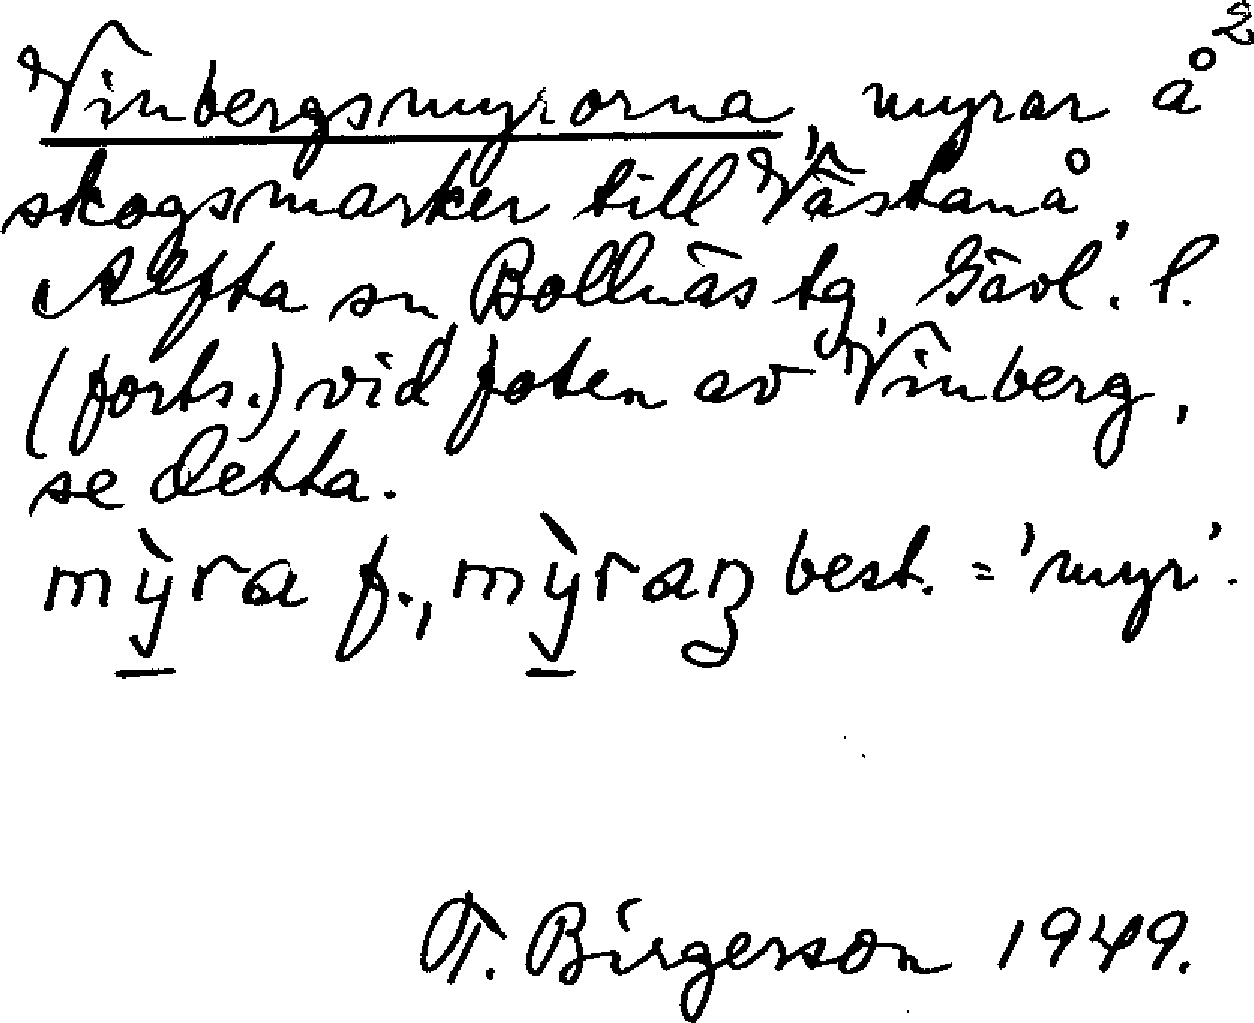 2
Vinbergsmyrorna, myrar å
skogsmarker till Västanå,
Alfta sn Bollnäs tg, Gävl. l.
(forts.) vid foten av Vinberg,
se detta.
mỳra f., mỳraŋ best. = 'myr'.
T. Birgerson 1949.